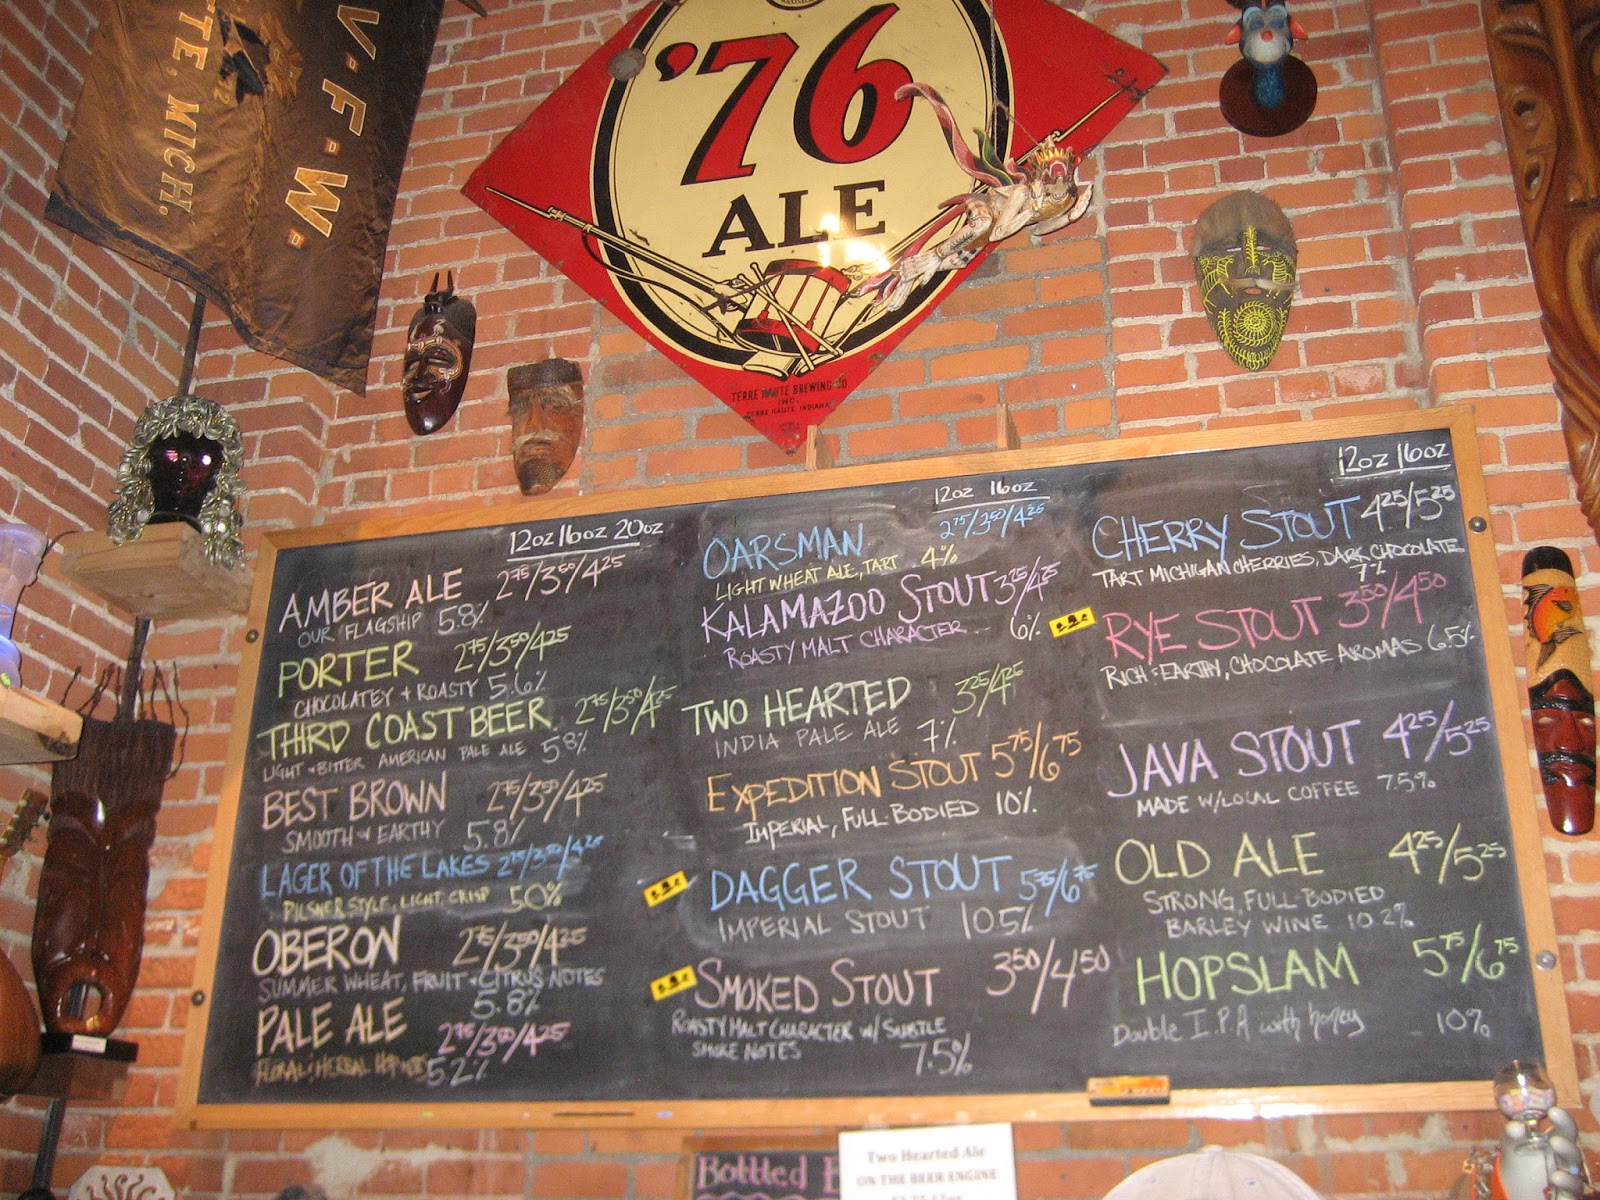 V·F·W·
TE, MICH.
'76
ALE
TERRE HAUTE BREWING CO
INC
TERRE HAUTE INDIANA
12oz 16oz 20oz
AMBER ALE 2.75/3.50/4.25
OUR FLAGSHIP 5.8%
PORTER 2.75/3.50/4.25
CHOCOLATEY + ROASTY 5.6%
THIRD COAST BEER 2.75/3.50/4.25
LIGHT + BITTER AMERICAN PALE ALE 5.8%
BEST BROWN 2.75/3.50/4.25
SMOOTH + EARTHY 5.8%
LAGER OF THE LAKES 2.75/3.50/4.25
PILSNER STYLE, LIGHT, CRISP 5.0%
OBERON 2.75/3.50/4.25
SUMMER WHEAT, FRUIT + CITRUS NOTES
5.8%
PALE ALE 2.75/3.00/4.25
FLORAL + HERBAL HOP NOTES 5.2%
12oz 16oz
OARSMAN 2.75/3.50/4.25
LIGHT WHEAT ALE, TART 4%
KALAMAZOO STOUT 3.25/4.25
ROASTY MALT CHARACTER 6%
TWO HEARTED 3.25/4.25
INDIA PALE ALE 7%
EXPEDITION STOUT 5.75/6.75
IMPERIAL, FULL-BODIED 10%
DAGGER STOUT 5.75/6.75
IMPERIAL STOUT 10.5%
SMOKED STOUT 3.50/4.50
ROASTY MALT CHARACTER W/ SUBTLE
SMOKE NOTES 7.5%
12oz 16oz
CHERRY STOUT 4.25/5.25
TART MICHIGAN CHERRIES, DARK CHOCOLATE
7%
RYE STOUT 3.50/4.50
RICH + EARTHY, CHOCOLATE AROMAS 6.5%
JAVA STOUT 4.25/5.25
MADE W/LOCAL COFFEE 7.5%
OLD ALE 4.25/5.25
STRONG, FULL-BODIED
BARLEY WINE 10.2%
HOPSLAM 5.75/6.75
Double I.P.A with honey 10%
Bottled
Two Hearted Ale
ON THE BEER ENGINE